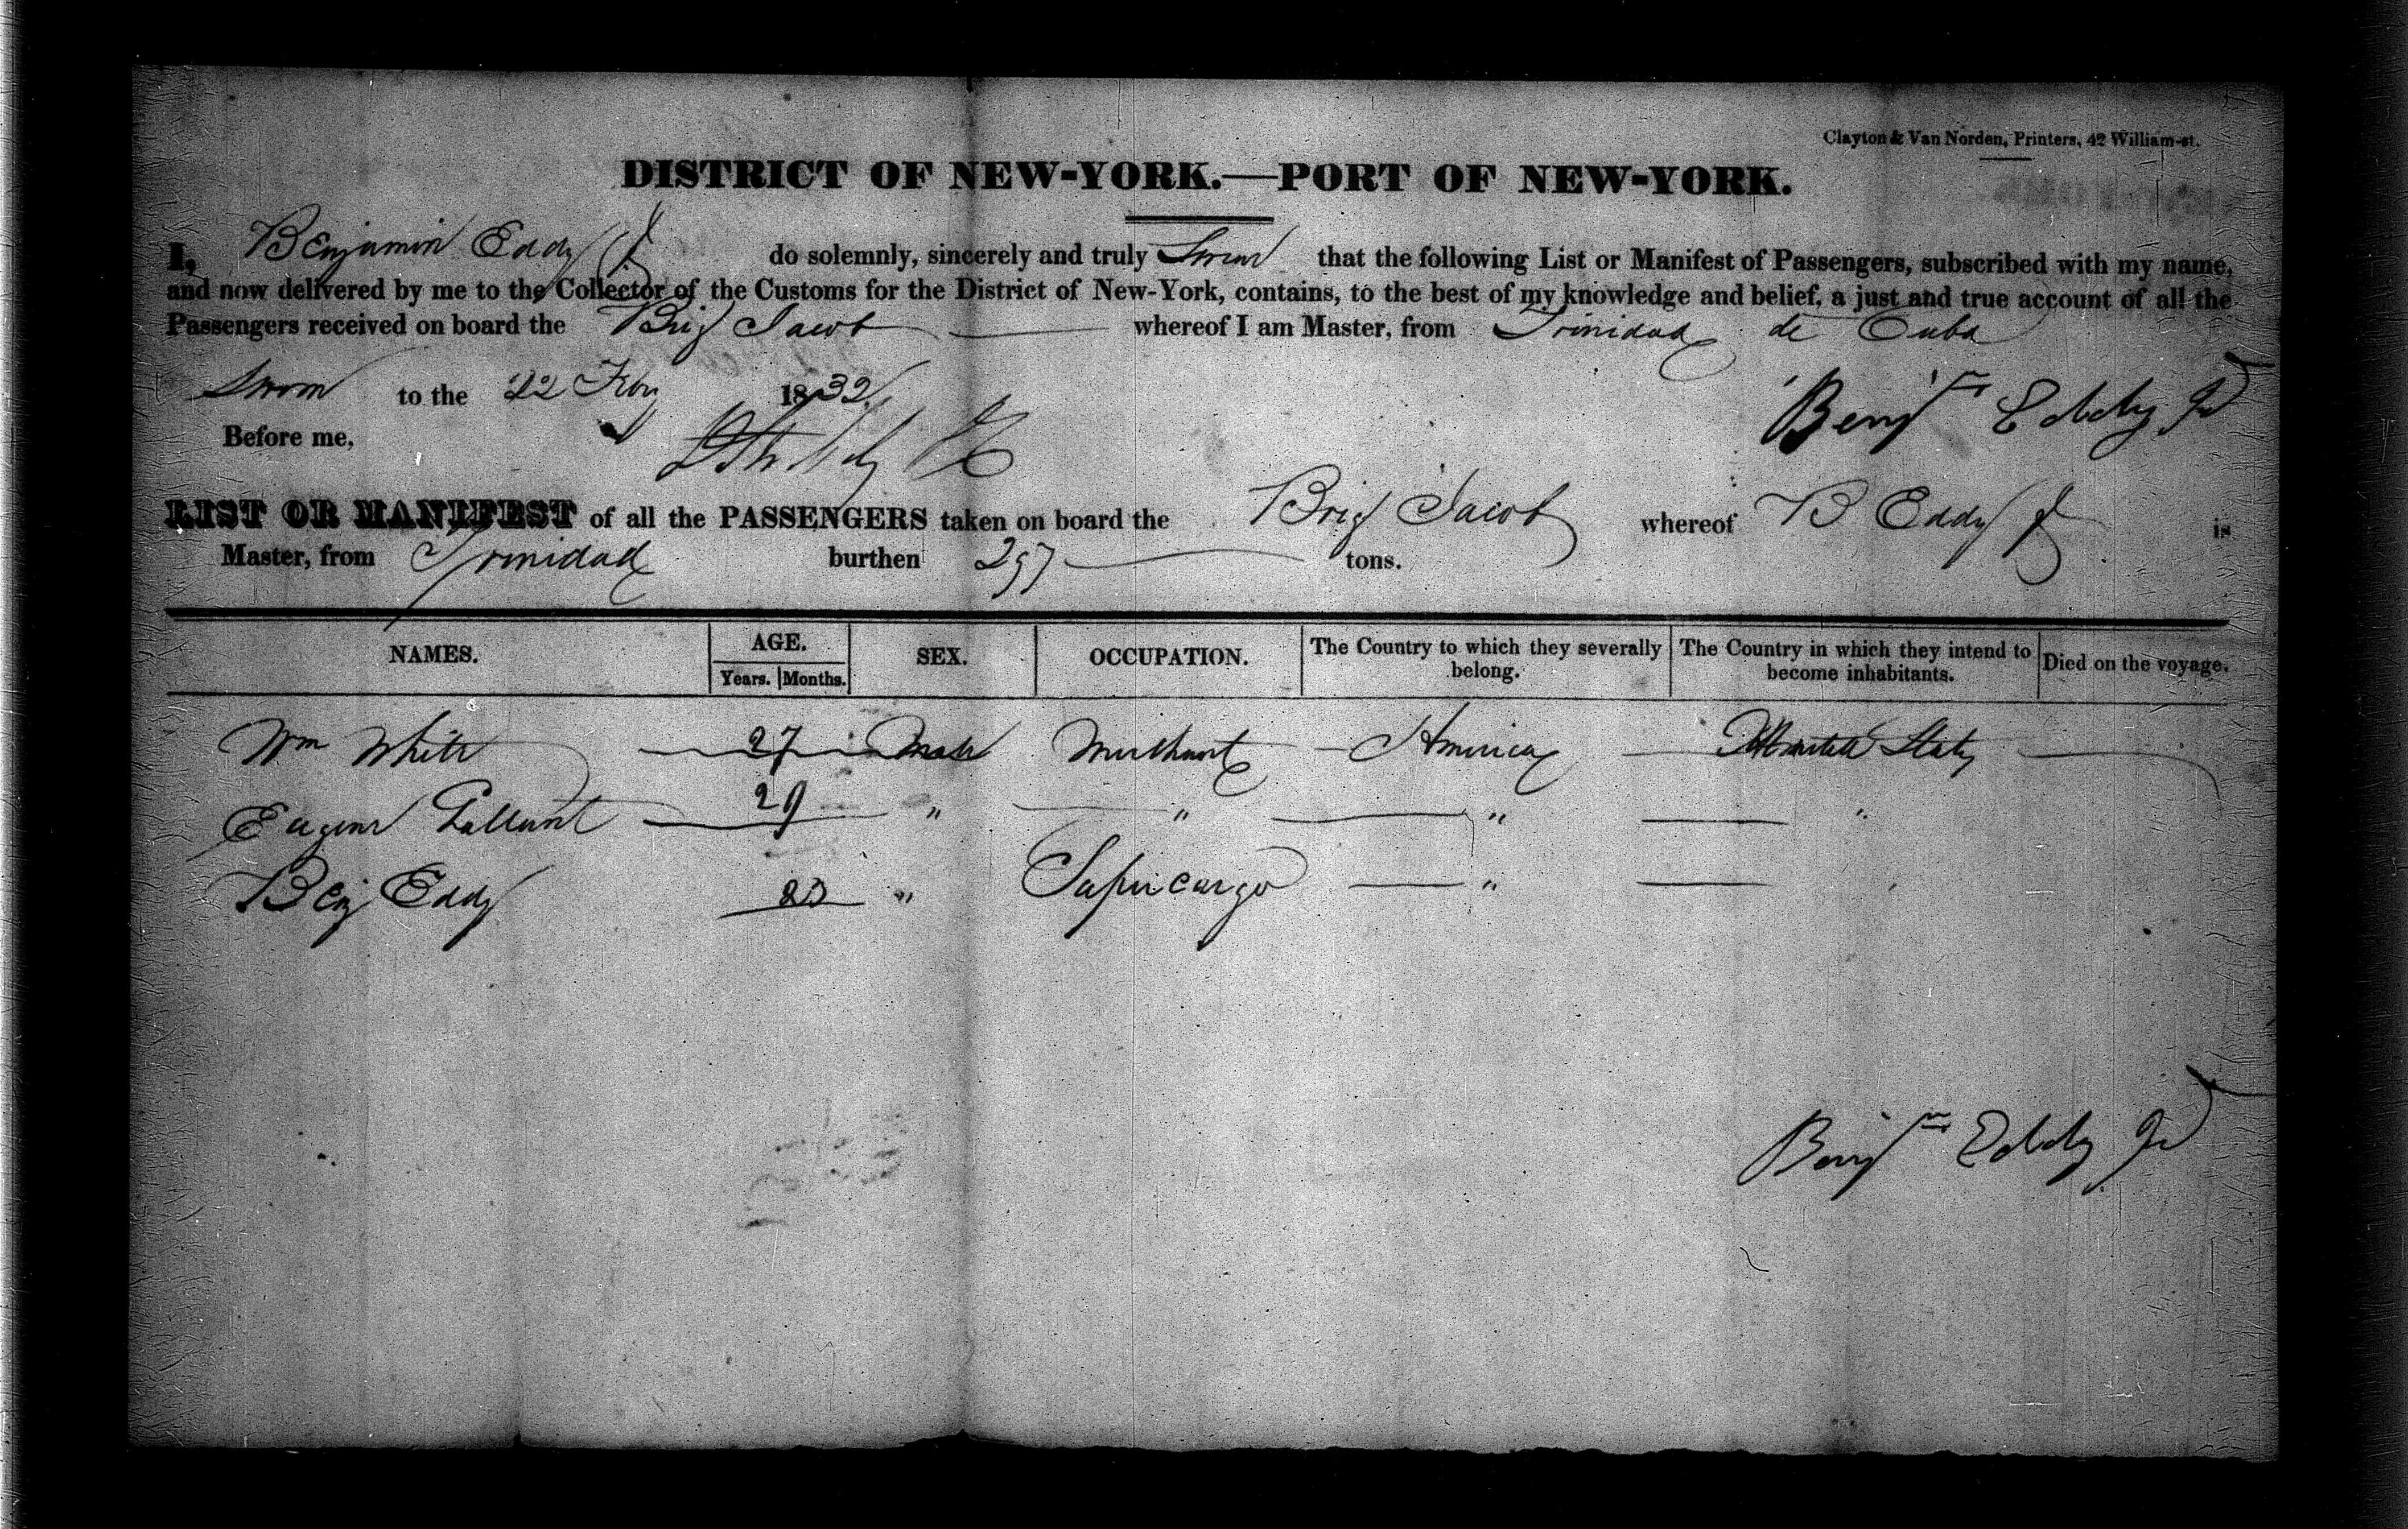 Clayton & Van Norden, Printers, 42 William-st.
DISTRICT OF NEW-YORK.—PORT OF NEW-YORK.
I, Benjamin Eddy Jr do solemnly, sincerely and truly Swear that the following List or Manifest of Passengers, subscribed with my name,
and now delivered by me to the Collector of the Customs for the District of New-York, contains, to the best of my knowledge and belief, a just and true account of all the
Passengers received on board the Brig Jacob whereof I am Master, from Trinidad de Cuba
Sworn to the 22 Feby 1832
Before me,
Benjn Eddy Jr
LIST OR MANIFEST of all the PASSENGERS taken on board the Brig Jacob whereof B Eddy Jr is
Master, from Trinidad burthen 297 tons.
NAMES. AGE. SEX. OCCUPATION. The Country to which they severally belong. The Country in which they intend to become inhabitants. Died on the voyage.
Years. Months.
Wm White 27 Male Merchant America United States
Eugene Gallant 29 " " " "
Benj Eddy 23 " Supercargo " "
Benjn Eddy Jr